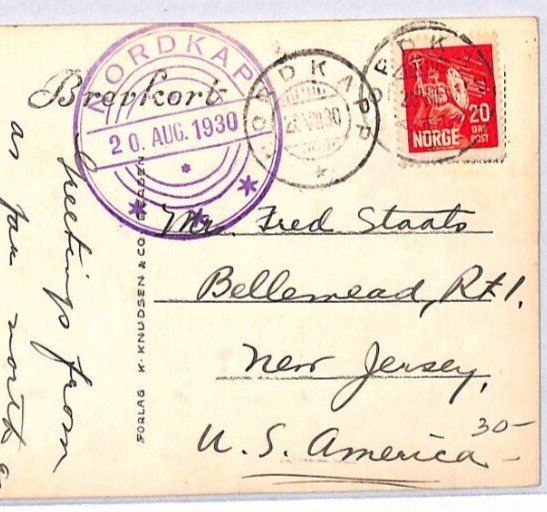 Brevkort
NORDKAPP
20. AUG. 1930
NORDKAPP
20 VIII 30
NORDKAPP
20
ØRE
NORGE POST
Mr. Fred Staats
Bellemead, Rt 1.
New Jersey,
U.S. America
30-
FORLAG K. KNUDSEN & CO BERGEN
Greetings from
as far north